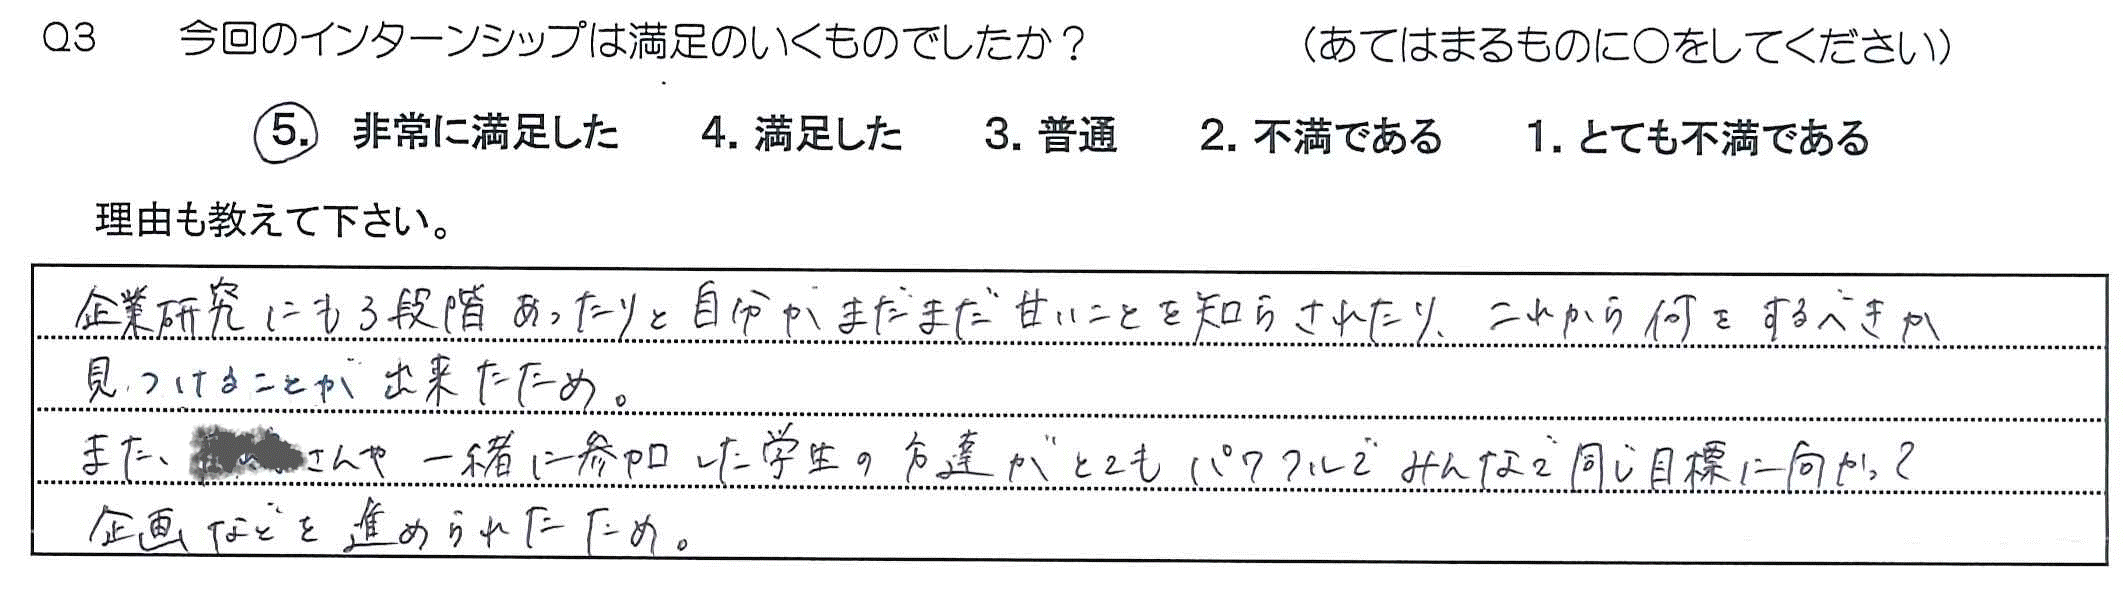 Q3 今回のインターンシップは満足のいくものでしたか？ （あてはまるものに○をしてください）
5. 非常に満足した 4. 満足した 3. 普通 2. 不満である 1. とても不満である
理由も教えて下さい。
企業研究にも3段階あったりと自分がまだまだ甘いことを知らされたり、これから何をするべきか
見つけることが出来たため。
また、さんや一緒に参加した学生の方達がとてもパワフルでみんなで同じ目標に向かって
企画などを進められたため。